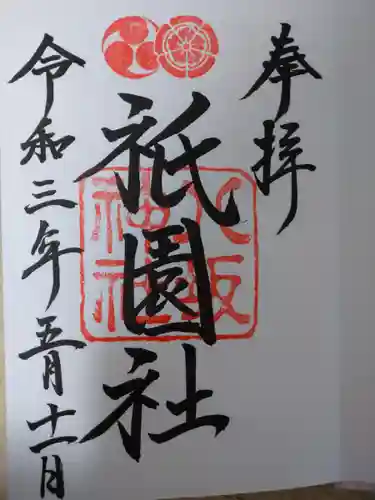 奉拝
祇園社
八坂
神社
令和三年五月十一日